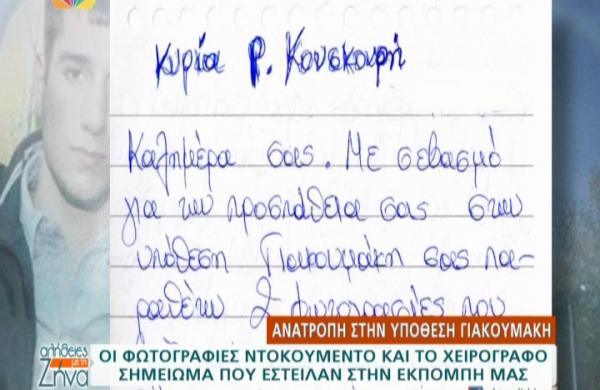 Κυρία Ρ. Κουσκουρή
Καλημέρα σας. Με σεβασμό
για την προσπάθεια σας στην
υπόθεση Γιακουμάκη σας πα-
ραθέτω 2 φωτογραφίες που
ΑΝΑΤΡΟΠΗ ΣΤΗΝ ΥΠΟΘΕΣΗ ΓΙΑΚΟΥΜΑΚΗ
αλήθειες
με τη
Ζήνα
ΟΙ ΦΩΤΟΓΡΑΦΙΕΣ ΝΤΟΚΟΥΜΕΝΤΟ ΚΑΙ ΤΟ ΧΕΙΡΟΓΡΑΦΟ
ΣΗΜΕΙΩΜΑ ΠΟΥ ΕΣΤΕΙΛΑΝ ΣΤΗΝ ΕΚΠΟΜΠΗ ΜΑΣ